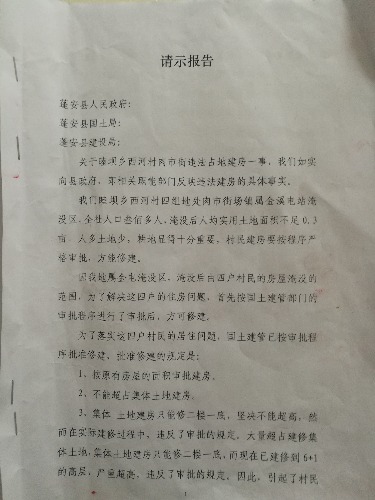 请示报告
蓬安县人民政府：
蓬安县国土局：
蓬安县建设局：
关于睦坝乡西河村肉市街违法占地建房一事，我们如实
向县政府，和相关职能部门反映违法建房的具体事实。
我们睦坝乡西河村四组地处肉市街场镇属金溪电站淹
没区，全社人口叁佰多人，淹没后人均实用土地面积不足0.3
亩，人多土地少，耕地显得十分重要，村民建房要按程序严
格审批，方能修建。
因我地属金电淹没区，淹没后由四户村民的房屋淹没的
范围，为了解决这四户的住房问题，首先按国土建管部门的
审批程序进行了审批后，方可修建。
为了落实这四户村民的居住问题，国土建管已按审批程
序批准修建，批准修建的规定是：
1、按原有房屋的面积审批建房。
2、不能超占集体土地建房。
3、集体 土地建房只能修二楼一底，坚决不能超高，然
而在实际建修过程中，违反了审批的规定，大量超占建修集
体土地，集体土地建房只能修二楼一底，而现在已建修到6+1
的高层，严重超高，违反了审批的规定，因此，引起了村民
1